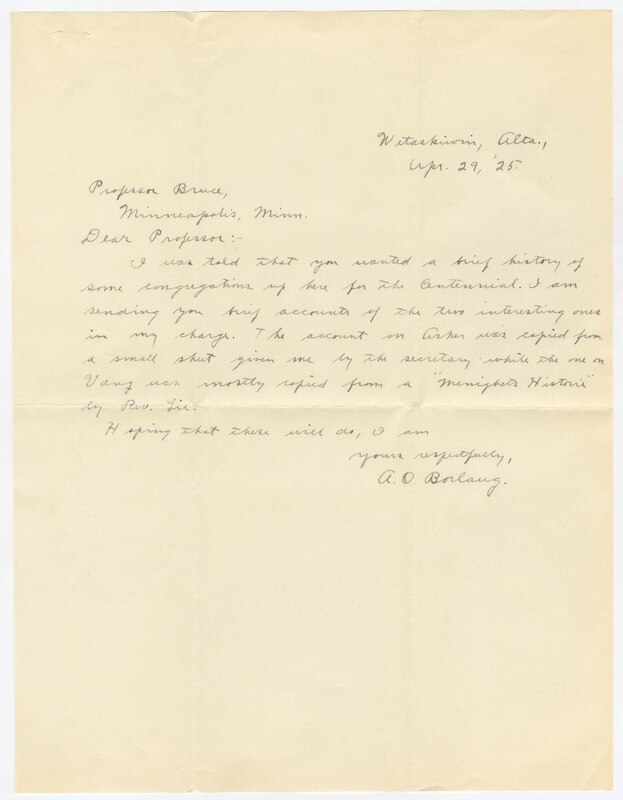 Wetaskiwin, Alta.,
Apr. 29, '25.
Professor Bruce,
Minneapolis, Minn.
Dear Professor:-
I was told that you wanted a brief history of
some congregations up here for the Centennial. I am
sending you brief accounts of the two interesting ones
in my charge. The account on Asker was copied from
a small sheet given me by the secretary while the one on
Vang was mostly copied from a "Menighets Historie"
by Rev. Lie.
Hoping that these will do, I am
yours respectfully,
A. O. Borlaug.